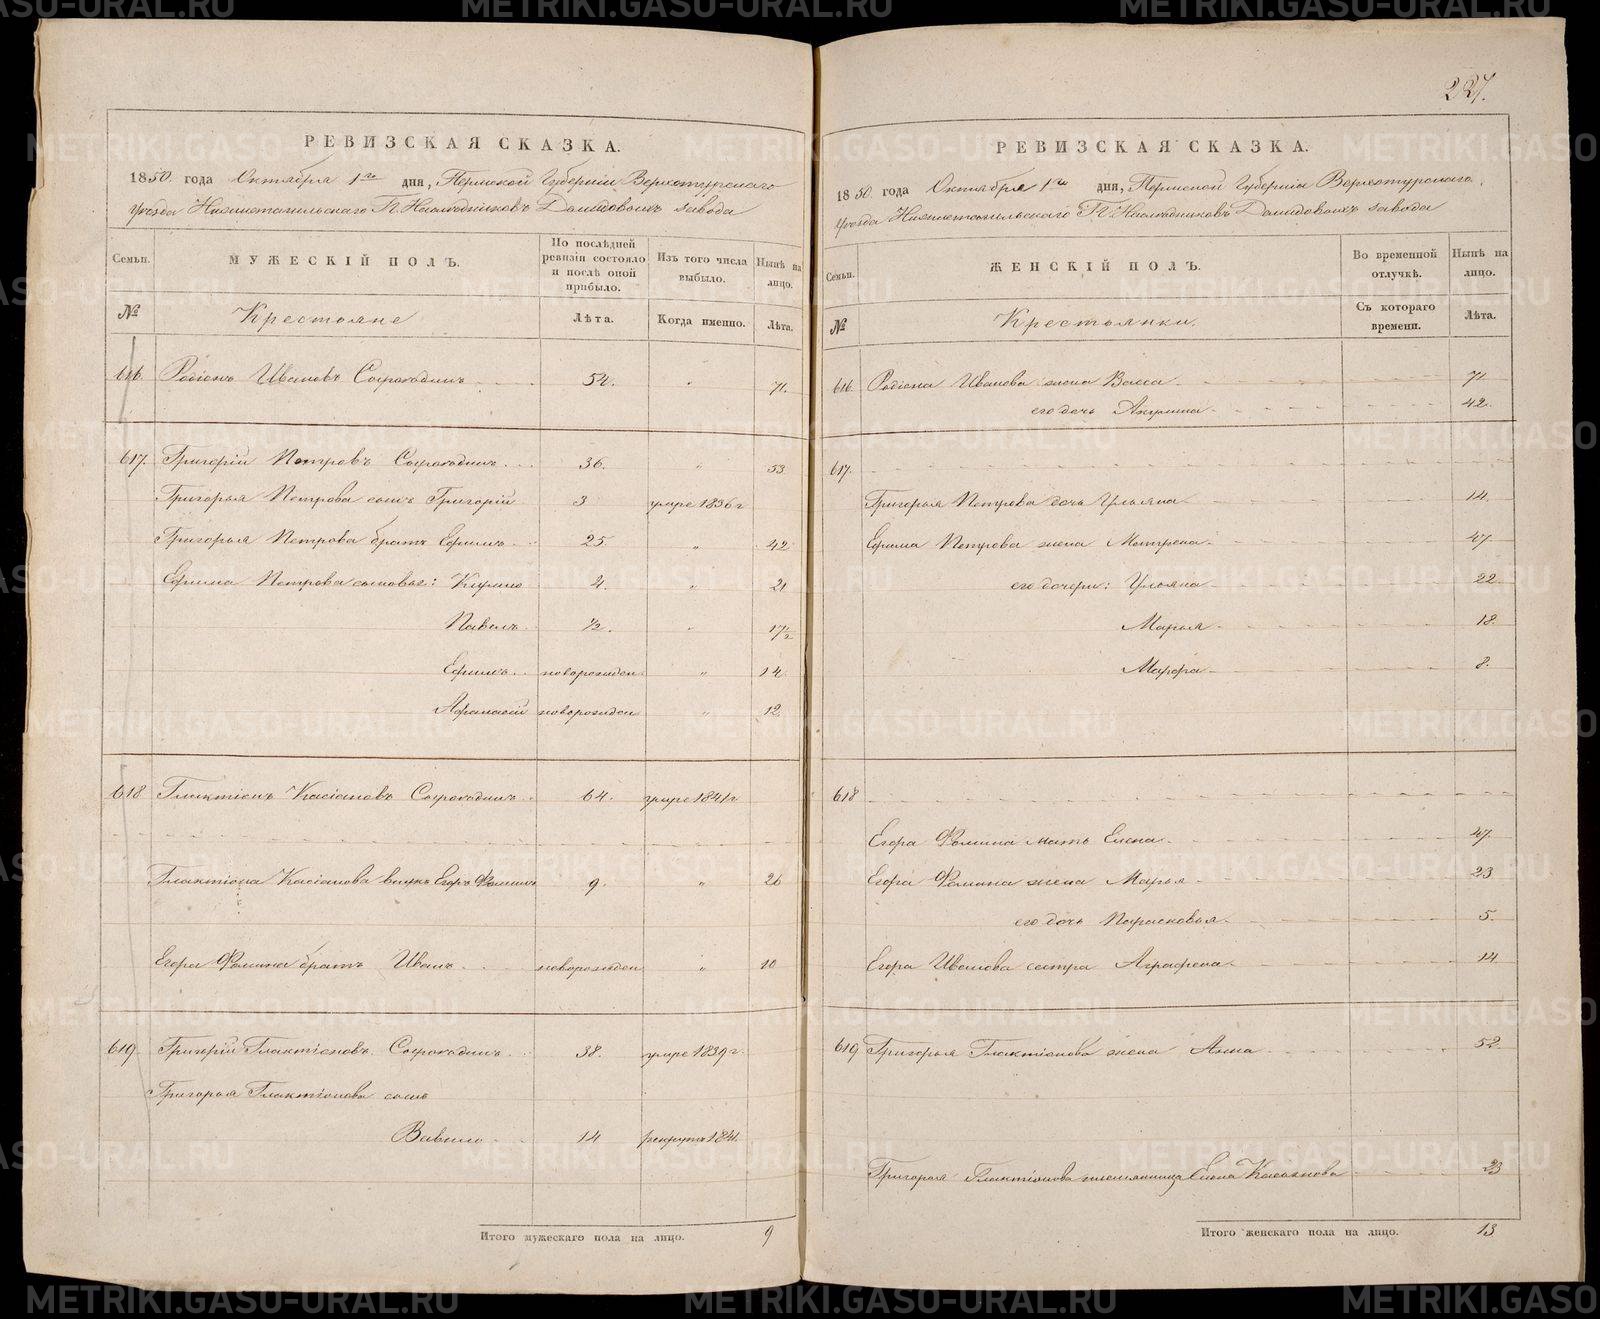 227.
РЕВИЗСКАЯ СКАЗКА.
1850. года Октября 1го дня, Пермской Губерніи Верхотурскаго
уезда Нижнетагильскаго Г. Наследниковъ Демидовыхъ завода
Семьи.
МУЖЕСКІЙ ПОЛЪ.
По послѣдней ревизіи состояло и послѣ оной прибыло.
Изъ того числа выбыло.
Нынѣ на лицо.
№
Крестьяне
Лѣта.
Когда именно.
Лѣта.
616. Родіонъ Ивановъ 52. " 71.
617. Григорій Петровъ 36. " 53
Григорья Петрова сынъ Григорій 3 умре 1836 г
Григорья Петрова братъ Ефимъ 25. " 42
Ефима Петрова сыновья: Кирило 4. " 21
Павелъ ½. " 17½
Ефимъ новорожден " 14.
Афанасій новорожден " 12.
618 Галактіонъ Касіановъ 64. умре 1841 г
Галактіона Касіанова внукъ Егоръ Фоминъ 9. " 26
Егора Фомина братъ Иванъ новорожден " 10
619. Григорій Галактіоновъ 38. умре 1839 г.
Григорья Галактіонова сынъ
Вавило 14 рекрутъ 1841.
Итого мужескаго пола на лицо. 9
РЕВИЗСКАЯ СКАЗКА.
1850 года Октября 1го дня, Пермской Губерніи Верхотурскаго
уезда Нижнетагильскаго Г. Наследниковъ Демидовыхъ завода
Семьи.
ЖЕНСКІЙ ПОЛЪ.
Во временной отлучкѣ.
Нынѣ на лицо.
№
Крестьянки.
Съ котораго времени.
Лѣта.
616. Родіона Иванова жена Васса 71
его дочь Акулина 42.
617.
Григорья Петрова дочь Ульяна 14.
Ефима Петрова жена Матрена 47
его дочери: Ульяна 22.
Марья 18.
Марфа 8.
618
Егора Фомина мать Елена 47.
Егора Фомина жена Марья 23
его дочь Парасковья 5.
Егора Иванова сестра Аграфена 14
619 Григорья Галактіонова жена Анна 52.
Григорья Галактіонова племянница Елена Касьянова 23
Итого женскаго пола на лицо. 13
METRIKI.GASO-URAL.RU